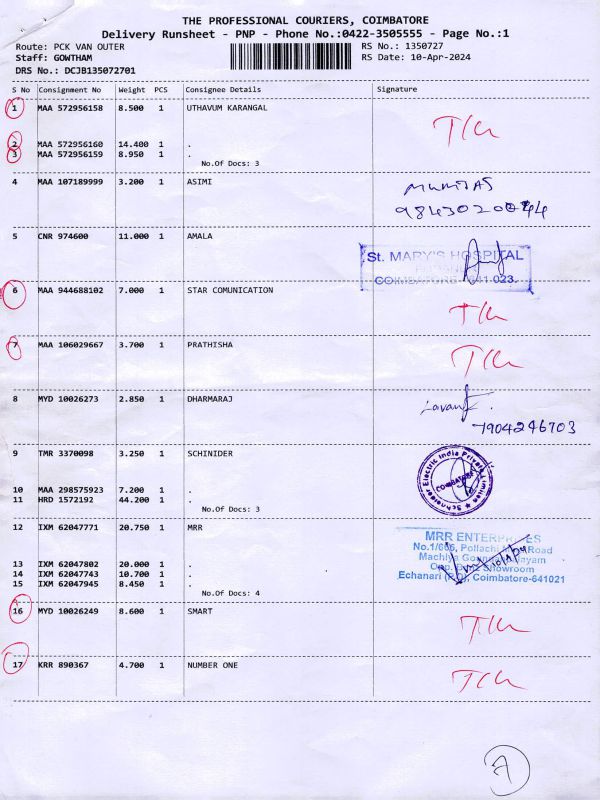 THE PROFESSIONAL COURIERS, COIMBATORE
Delivery Runsheet - PNP - Phone No.:0422-3505555 - Page No.:1
Route: PCK VAN OUTER RS No.: 1350727
Staff: GOWTHAM RS Date: 10-Apr-2024
DRS No.: DCJB135072701
S No Consignment No Weight PCS Consignee Details Signature
1 MAA 572956158 8.500 1 UTHAVUM KARANGAL
2 MAA 572956160 14.400 1 .
3 MAA 572956159 8.950 1 .
No.Of Docs: 3
4 MAA 107189999 3.200 1 ASIMI
MUMTAS
9843020044
5 CNR 974600 11.000 1 AMALA
St. MARY'S HOSPITAL
COIMBATORE 641 023.
6 MAA 944688102 7.000 1 STAR COMUNICATION
7 MAA 106029667 3.700 1 PRATHISHA
8 MYD 10026273 2.850 1 DHARMARAJ
7904246703
9 TMR 3370098 3.250 1 SCHINIDER
Schneider Electric India Private Limited
COIMBATORE
10 MAA 298575923 7.200 1 .
11 HRD 1572192 44.200 1 .
No.Of Docs: 3
12 IXM 62047771 20.750 1 MRR
MRR ENTERPRISES
No.1/666, Pollachi Main Road
Opp. Showroom
Echanari (P.O), Coimbatore-641021
13 IXM 62047802 20.000 1 .
14 IXM 62047743 10.700 1 .
15 IXM 62047945 8.450 1 .
No.Of Docs: 4
16 MYD 10026249 8.600 1 SMART
17 KRR 890367 4.700 1 NUMBER ONE